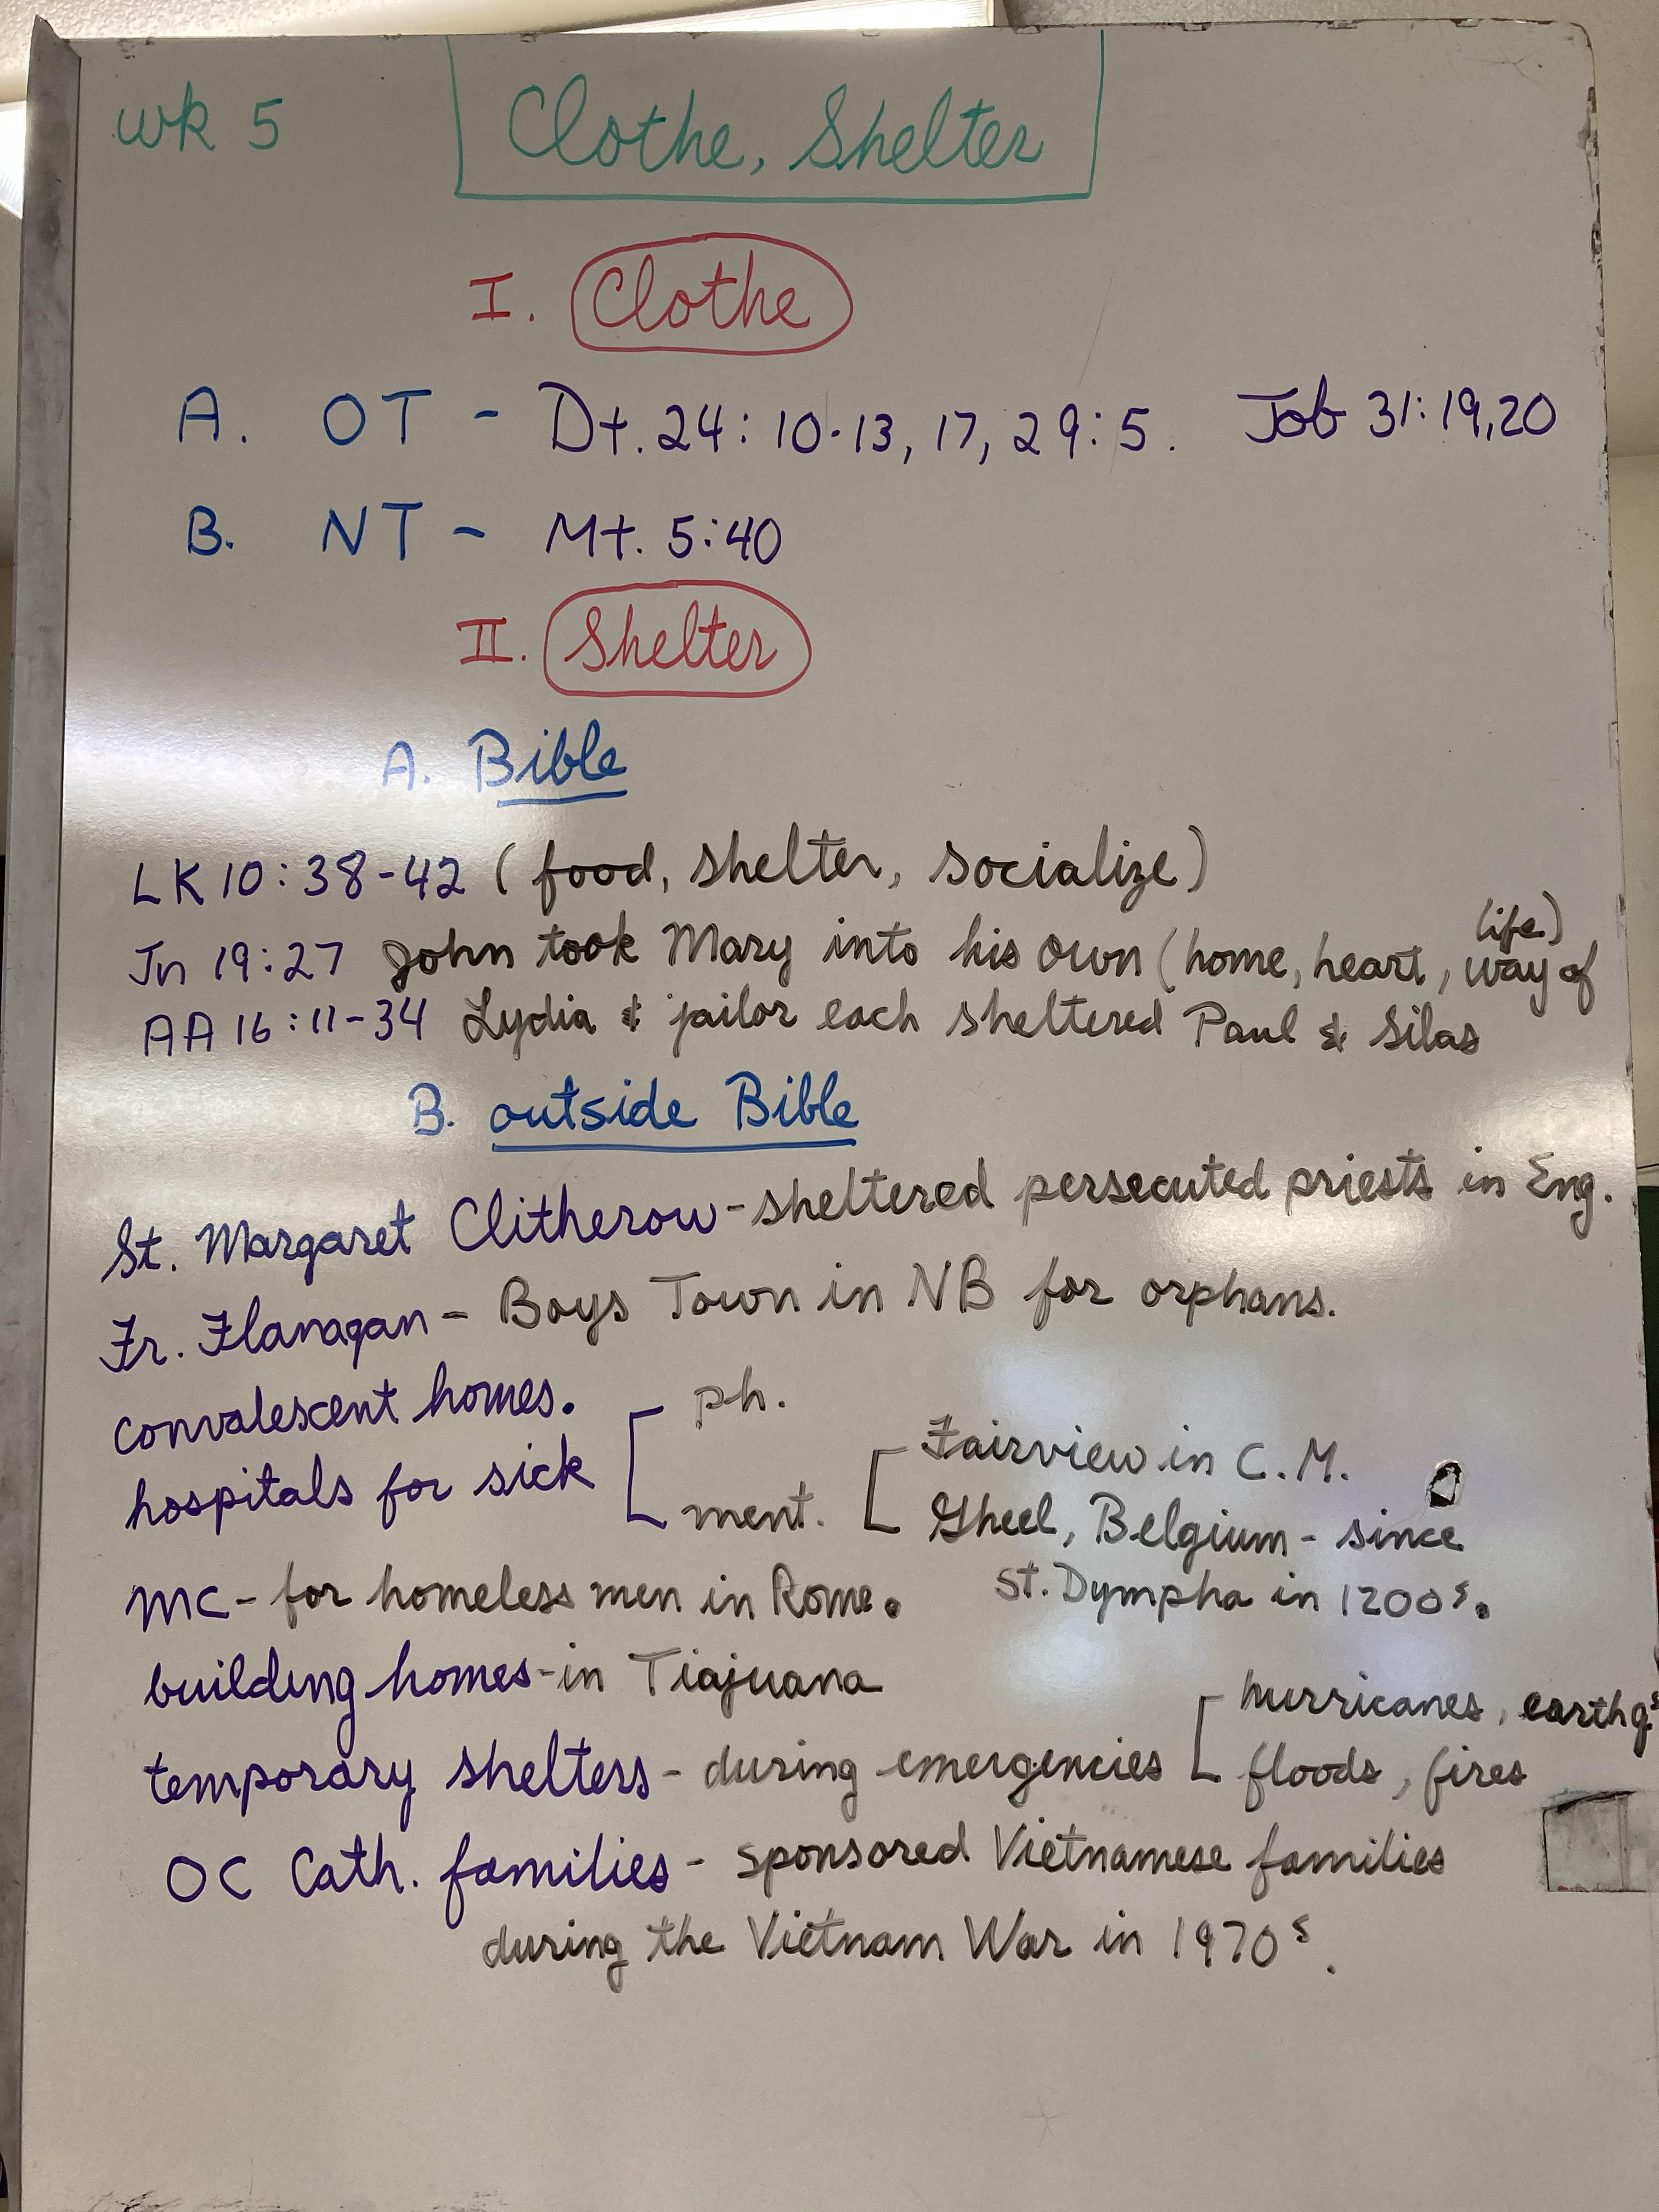 wk 5
Clothe, Shelter
I. Clothe
A. OT - Dt. 24: 10-13, 17, 29:5. Job 31:19,20
B. NT - Mt. 5:40
II. Shelter
A. Bible
LK 10:38-42 (food, shelter, socialize)
Jn 19:27 John took Mary into his own (home, heart, way of life)
AA 16:11-34 Lydia & jailor each sheltered Paul & Silas
B. outside Bible
St. Margaret Clitherow - sheltered persecuted priests in Eng.
Fr. Flanagan - Boys Town in NB for orphans.
convalescent homes.
hospitals for sick [ ph.
ment. [ Fairview in C.M.
Gheel, Belgium - since
St. Dympha in 1200s.
MC - for homeless men in Rome.
building homes - in Tiajuana
temporary shelters - during emergencies [ hurricanes, earthq.s
floods, fires
OC Cath. families - sponsored Vietnamese families
during the Vietnam War in 1970s.